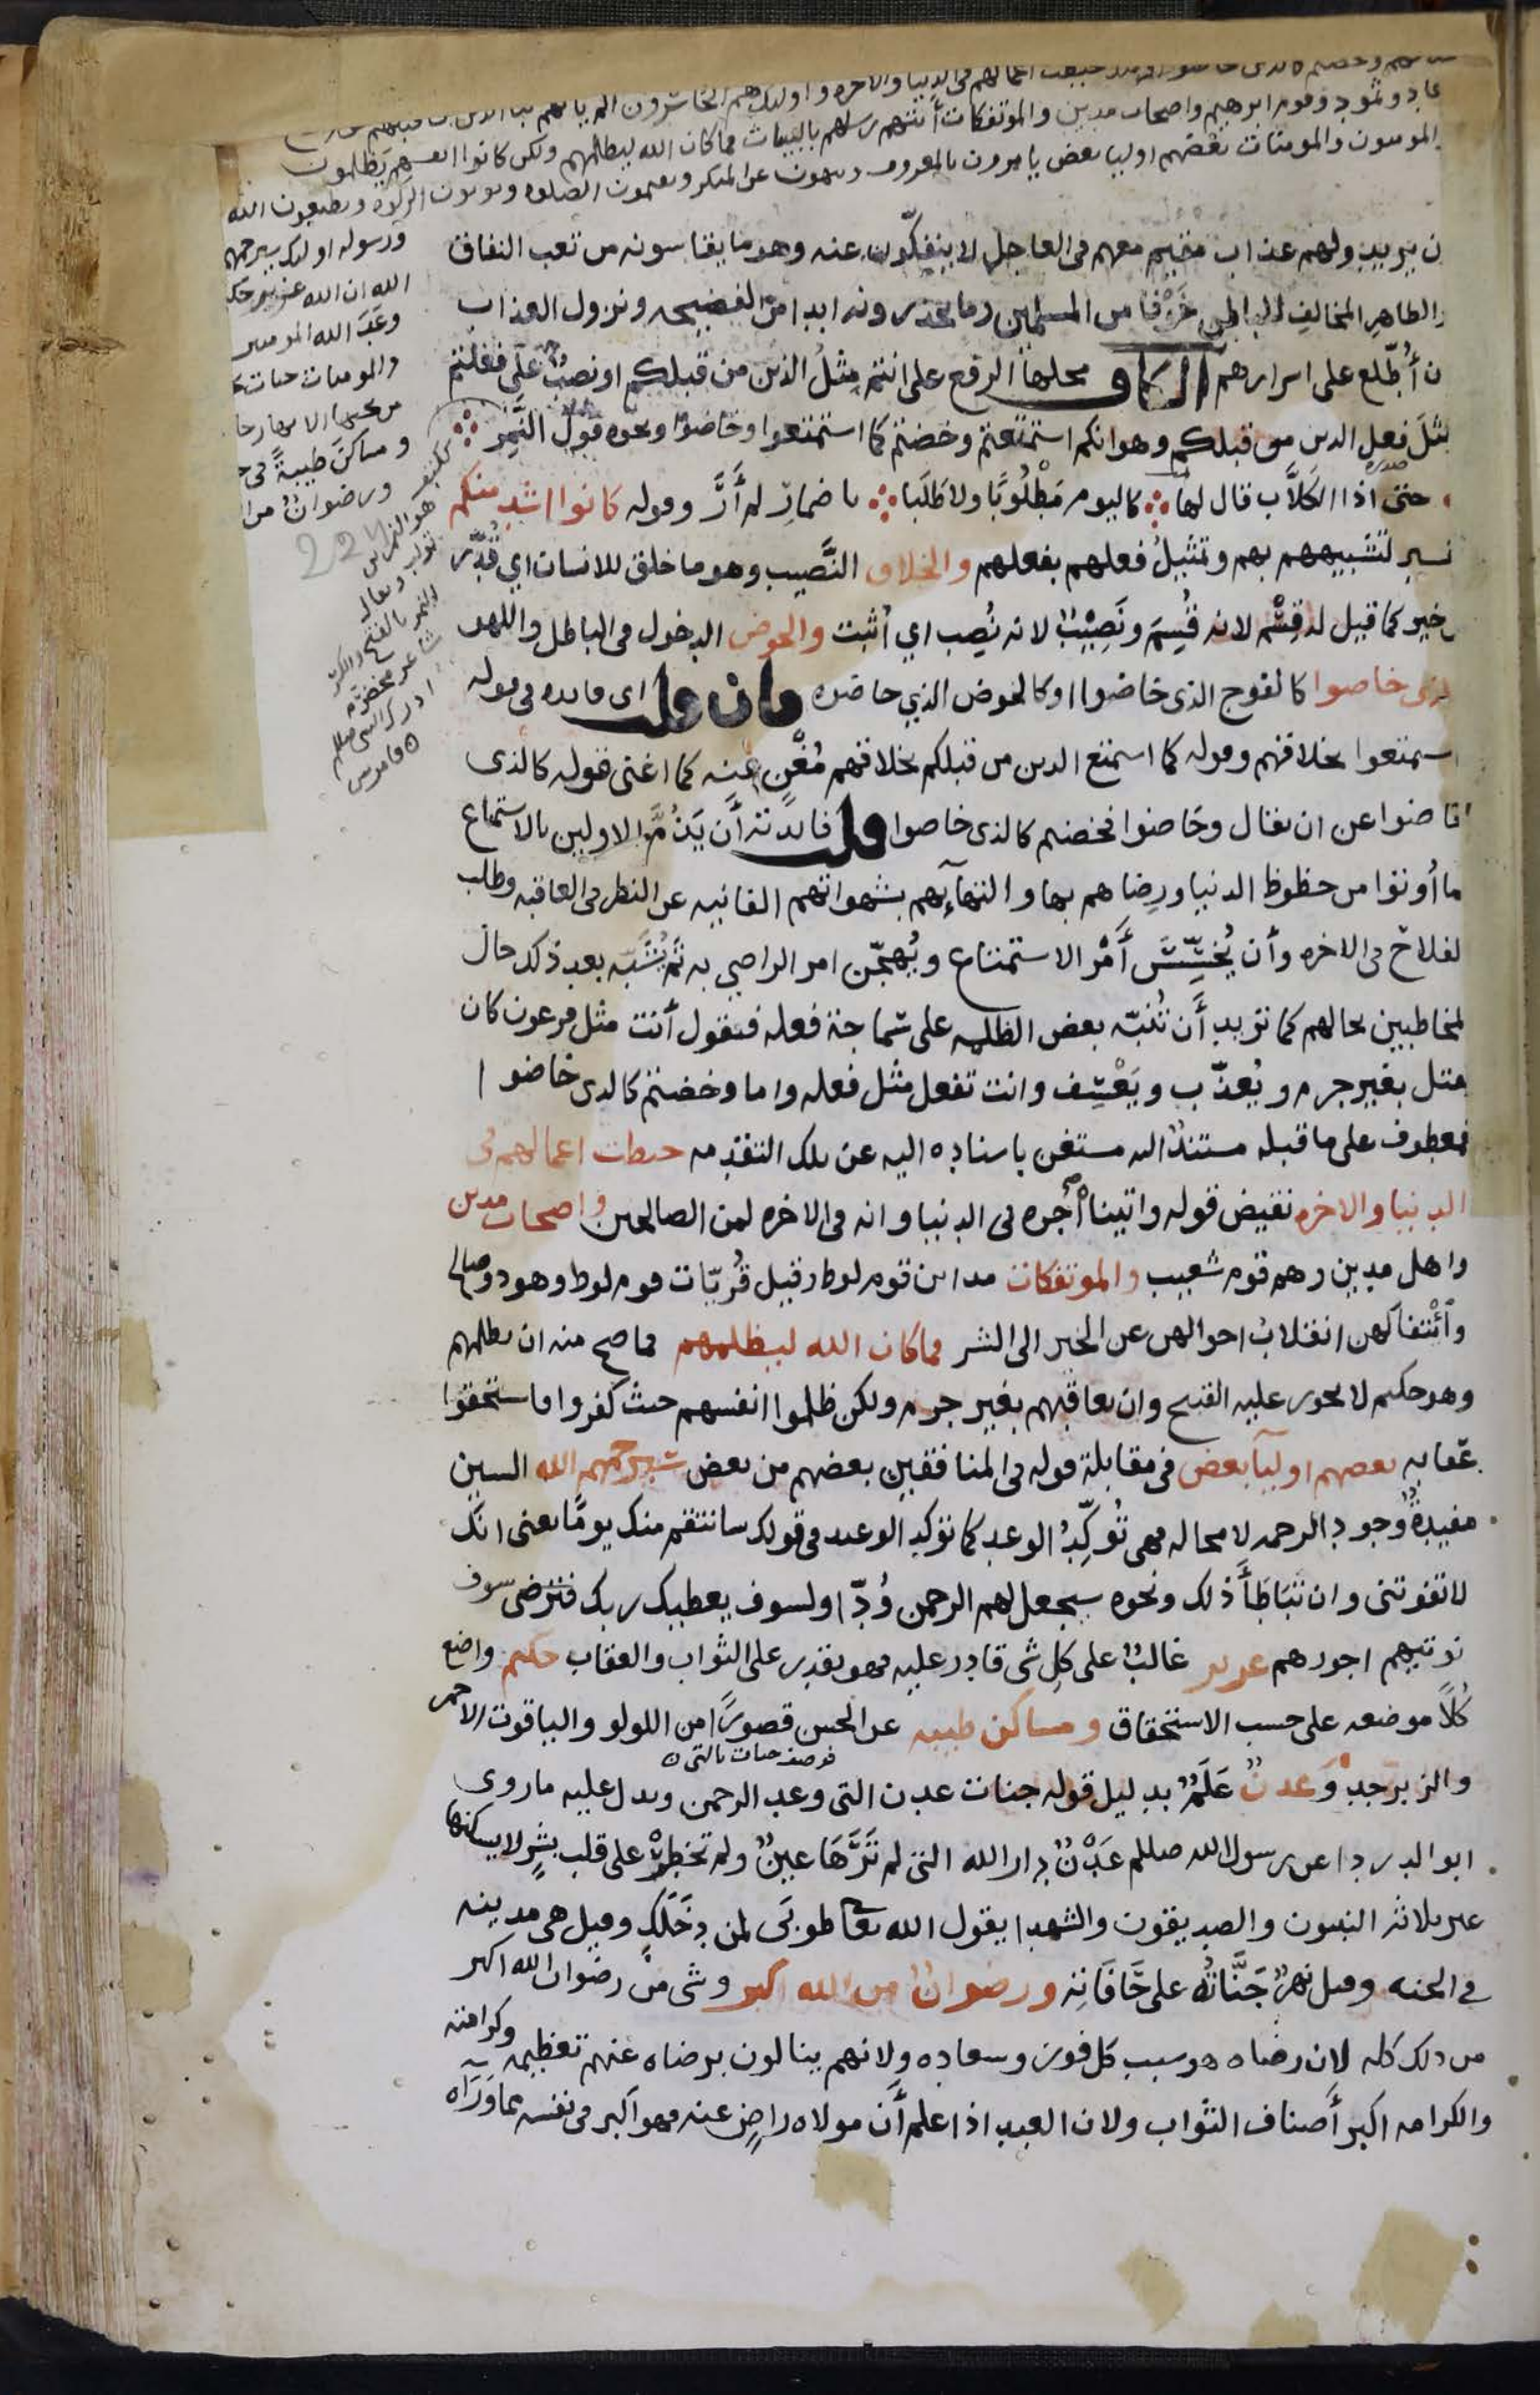 عاد وثمود وقوم ابرهيم واصحاب مدين والموتفكات أتتهم رسلهم بالبينات فما كان الله ليظلمهم ولكن كانوا انفسهم يظلمون
المومنون والمومنات بعضهم اوليا بعض يامرون بالمعروف وينهون عن المنكر ويقيمون الصلوه ويوتون الزكوه ويطيعون الله
ورسوله اوليك سيرحمهم
الله ان الله عزيز حك
وعَدَ الله المومنين
والمومنات جنات
من تحتها الانهار خا
ومساكنَ طيبةً في
ورضوانٌ من ا
ن يريد ولهم عذاب مقيم معهم في العاجل لا ينفكّون عنه وهو ما يقاسونه من تعب النفاق
والظاهرِ المخالفِ للباطن خَوْفا من المسلمين وما يحذرونه ابدا من الفضيحه ونزول العذاب
ن أُطّلع على اسرارهم الكاف محلها الرفع على انتم مِثْلُ الذين من قبلكم او نصبٌ على فعلتم
مثلَ فعلِ الدين من قبلكم وهو انكم استمتعتم وخضتم كما استمتعوا وخاضوا ونحوه قول النَّمِر
حتى اذا الكَلاَّب قال لها كاليوم مَطْلُوبًا ولا طَلَبا باضمارِ لم أَرَ وقوله كانوا اشد منكم
تفسير لتشبيههم بهم وتمثيلُ فعلهم بفعلهم والخلاق النَّصيب وهو ما خلق للانسان اي قُدّر
من خير كما قيل له قِسْم لانه قُسِمَ ونَصِيْبٌ لانه نُصِب اي أُثبت والخوض الدخول في الباطل واللهو
كالذي خاضوا كالفوج الذي خاضوا او كالخوض الذي خاضوه فان قلت اي فايده في قوله
استمتعوا بخلاقهم وقوله كما استمتع الدين من قبلكم بخلاقهم مُغْنٍ عنه كما اغنى قوله كالذي
خاضوا عن ان يقال وخَاضوا فخضتم كالذي خاضوا قلت فائدته أَن يَذُمَّ الاولين بالاستمتاع
بما أُوتوا من حظوظ الدنيا ورِضاهم بها والتهآئِهم بشهواتهم الفانيه عن النظر في العاقبه وطلب
الفلاح في الاخره وأن يُخسّسَ أَمْر الاستمتاع ويُهجّن امر الراضي به ثم يُشَبّه بعد ذلك حال
المخاطبين بحالهم كما تريد أَن تُنبّه بعض الظلمه على سماجة فعله فتقول أنت مثل فرعون كان
يقتل بغير جرم ويُعذّب ويَعْسِف وانت تفعل مثل فعله واما وخضتم كالدى خاضوا
فمعطوف على ما قبله مستندٌ اليه مستغن باسناده اليه عن تلك التقدمه حبطت اعمالهم في
الدنيا والاخره نقيض قوله واتيناه أَجره في الدنيا وانه في الاخره لمن الصالحين واصحاب مدين
واهل مدين وهم قوم شعيب والموتفكات مداين قوم لوط وقيل قُرَيّات قوم لوط وهود وصالح
وائْتفاكهن انقلابُ احوالهن عن الخير الى الشر فما كان الله ليظلمهم فما صح منه ان يظلمهم
وهو حكيم لا يجوز عليه القبيح وان يعاقبهم بغير جرم ولكن ظلموا انفسهم حيث كفروا فاستحقوا
عقابه بعضهم اوليآ بعض في مقابلة قوله في المنافقين بعضهم من بعض سيرحمهم الله السين
مفيدةٌ وُجود الرحمه لا محاله فهي تُوكِّدُ الوعد كما توكد الوعيد في قولك سانتقم منك يومًا يعني انك
لا تفوتني وان تَبَاطَأَ ذلك ونحوه سيجعل لهم الرحمن وُدّا ولسوف يعطيك ربك فترضى سوف
نوتيهم اجورهم عزيز غالبٌ على كل شي قادر عليه فهو يقدر على الثواب والعقاب حكيم واضع
كُلاًّ موضعه على حسب الاستحقاق ومساكن طيبه عن الحسن قصورًا من اللولو والياقوت الاحمر
فوصف جنات بالتي
والزبرجد وَعدنٍ عَلَمٌ بدليل قوله جنات عدن التي وعد الرحمن ويدل عليه ما روى
ابو الدردا عن رسول الله صللم عَدْنٌ دار الله التي لم تَرَهَا عينٌ ولم تخطِرْ على قلب بشرٍ لا يسكنها
غير ثلاثه النبيون والصديقون والشهدا يقول الله تعا طوبَى لمن دخَلَكِ وقيل هي مدينه
في الجنه وقيل نهرٌ جَنَّاتُهُ على حَافَاتِه ورضوانٌ من الله اكبر وشي من رضوان الله اكبر
من ذلك كله لان رضاه هو سبب كل فوز وسعاده ولانهم ينالون برضاه عنهم تعظيمه وكرامته
والكرامه اكبر أَصناف الثواب ولان العبد اذا علم أَن مولاه راضٍ عنه فهو اكبر في نفسه مما وَرَآه
ككتف
هو النمر بن
تولب ويقال
النمر بالفتح والكسر
شاعر مخضرم
ادرك النبي صللم
قاموس